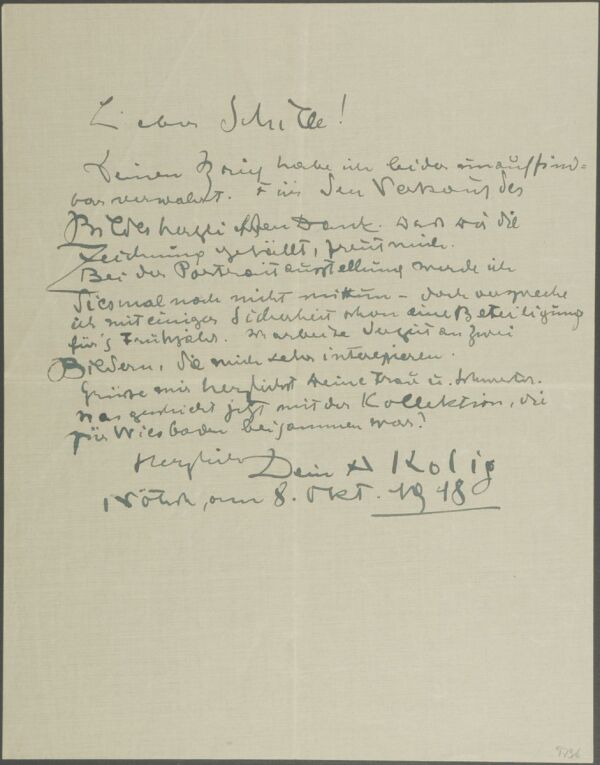 Lieber Schiele!
Deinen Brief habe ich leider unauffind=
bar verwahrt. Für den Verkauf des
Bildes herzlichen Dank. Dass dir die
Zeichnung gefällt, freut mich.
Bei der Portraitausstellung werde ich
diesmal noch nicht mittun – doch verspreche
ich mit einiger Sicherheit schon eine Beteiligung
für's Frühjahr. Ich arbeite derzeit an zwei
Bildern, die mich sehr interessieren.
Grüsse mir herzlichst Deine Frau u. Schwester.
Was geschieht jetzt mit der Kollektion, die
für Wiesbaden beisammen war?
Herzlichst Dein A Kolig
Nötsch, am 8. Okt. 1918